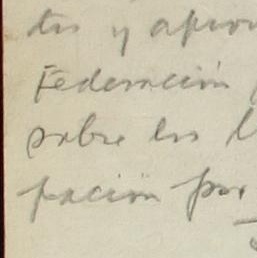 tes y apro
Federación
sobre los l
pación por